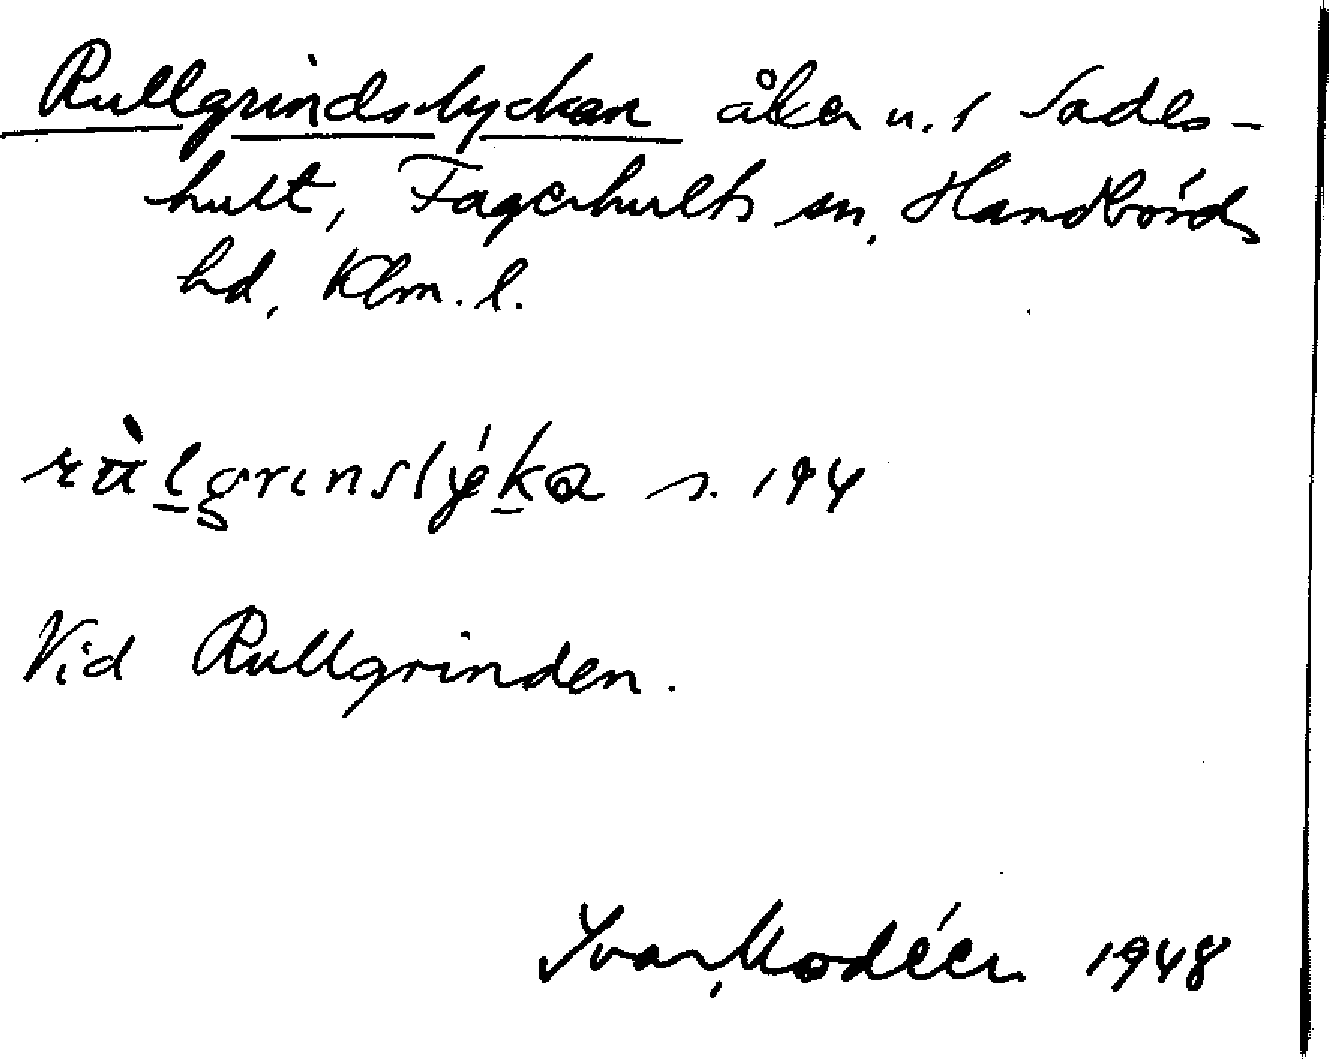 Rullgrindslyckan åker u. 1 Sades-
hult, Fagerhults sn, Handbörds
hd, Klm. l.
rùlgrɩnslýka s. 194
Vid Rullgrinden.
Ivar Modéer 1948